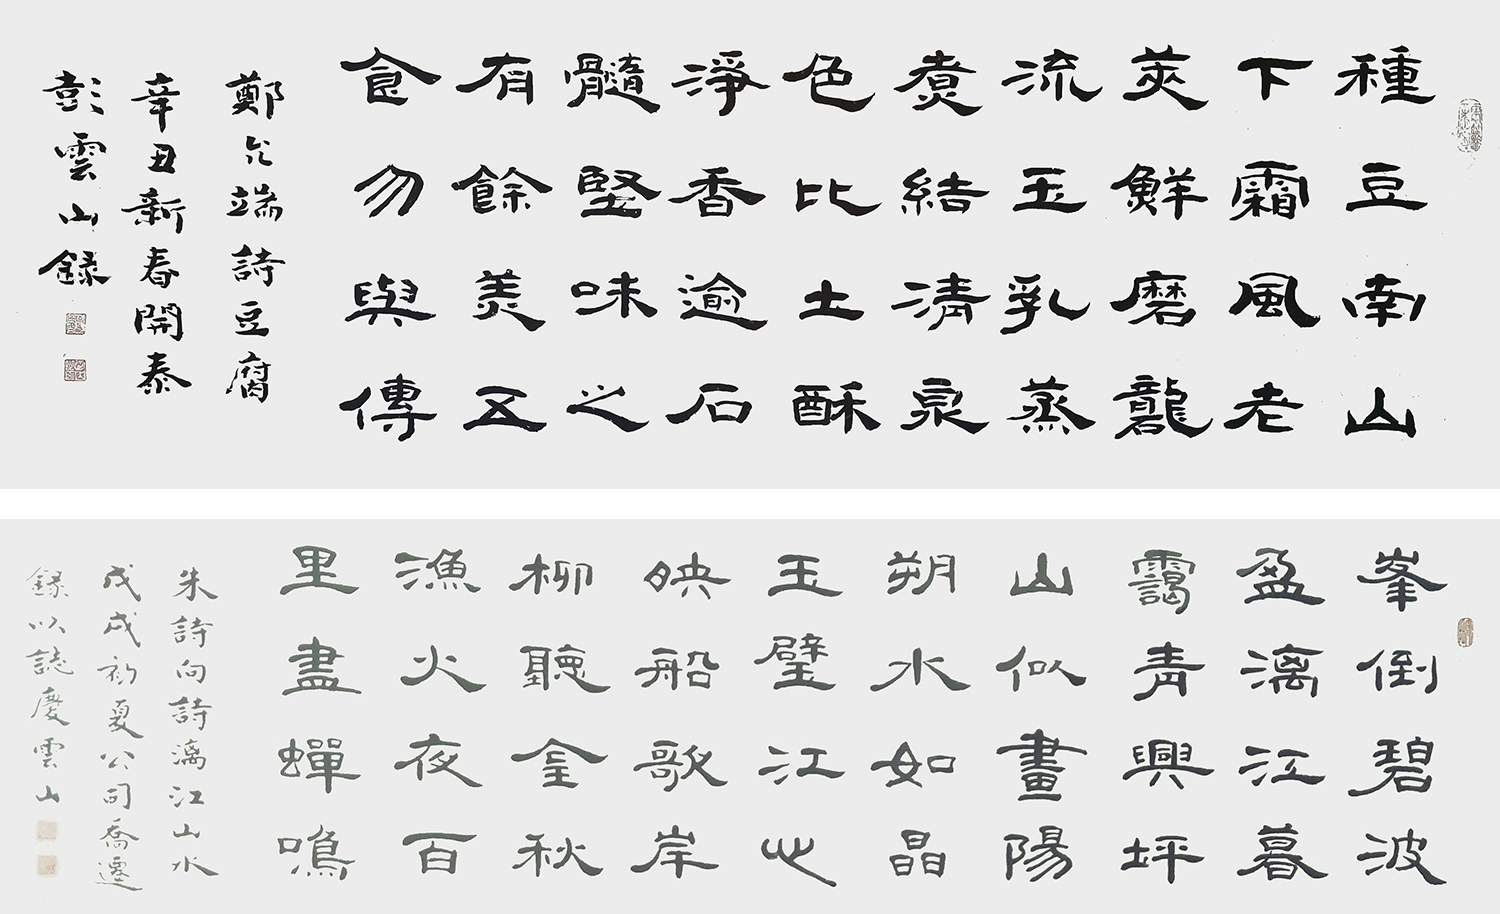 種豆南山
下霜風老
莢鮮磨龍
流玉乳蒸
煮結清泉
色比土酥
淨香逾石
髓堅味之
有餘美五
食勿與傳
鄭允端詩豆腐
辛丑新春開泰
彭雲山錄
峯倒碧波
盈漓江暮
靄青興坪
山似畫陽
朔水如晶
玉璧江心
映船歌岸
柳聽金秋
漁火夜百
里盡蟬鳴
朱詩向詩漓江山水
戊戌初夏公司喬遷
錄以誌慶雲山